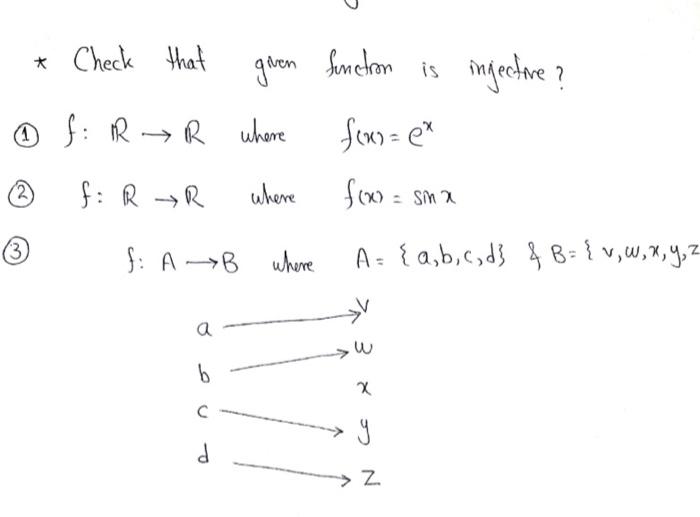 * Check that given function is injective?
① f: ℝ → ℝ where f(x) = eˣ
② f: ℝ → ℝ where f(x) = sin x
③ f: A → B where A = {a,b,c,d} & B = {v,w,x,y,z
a → v
b → w
x
c → y
d → z